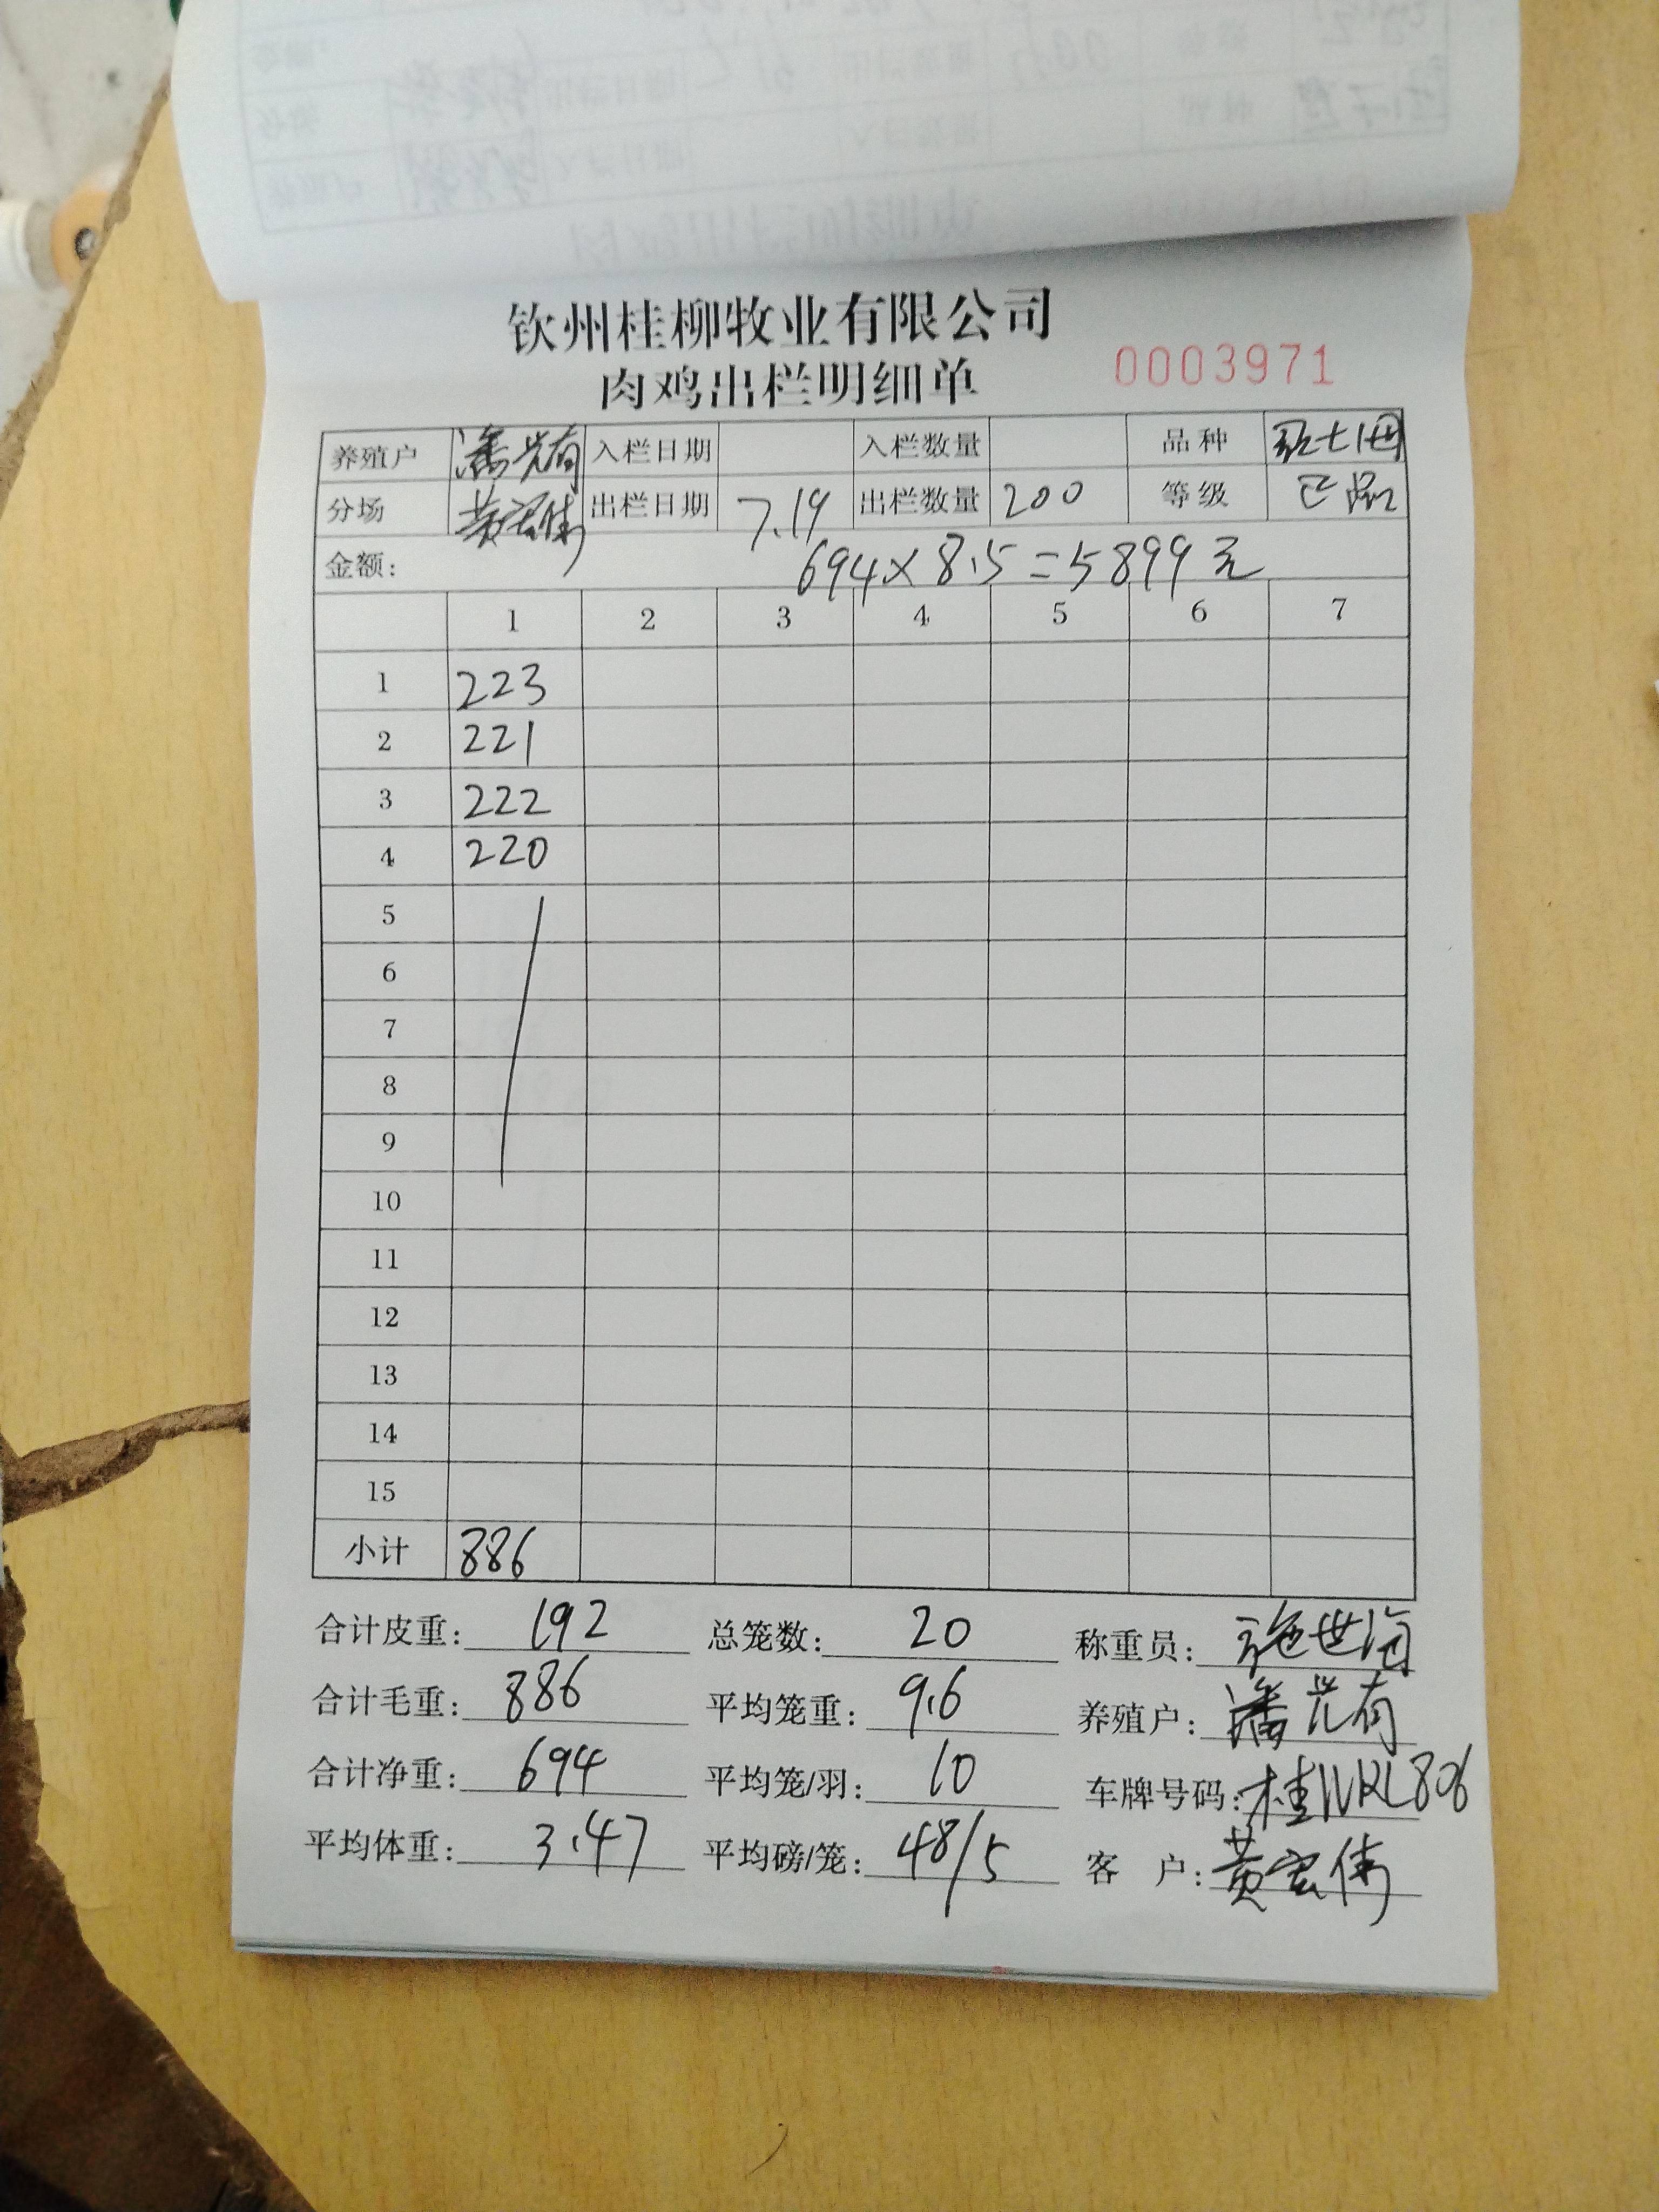 钦州桂柳牧业有限公司
肉鸡出栏明细单 0003971
养殖户 潘兴有 入栏日期 入栏数量 品种
分场 黄宏伟 出栏日期 7.19 出栏数量 200 等级 正品
金额: 694×8.5=5899元
1 2 3 4 5 6 7
1 223
2 221
3 222
4 220
5
6
7
8
9
10
11
12
13
14
15
小计 886
合计皮重: 192 总笼数: 20 称重员: 施世海
合计毛重: 886 平均笼重: 9.6 养殖户: 潘兴有
合计净重: 694 平均笼/羽: 10 车牌号码:
平均体重: 3.47 平均磅/笼: 48/5 客 户: 黄宏伟